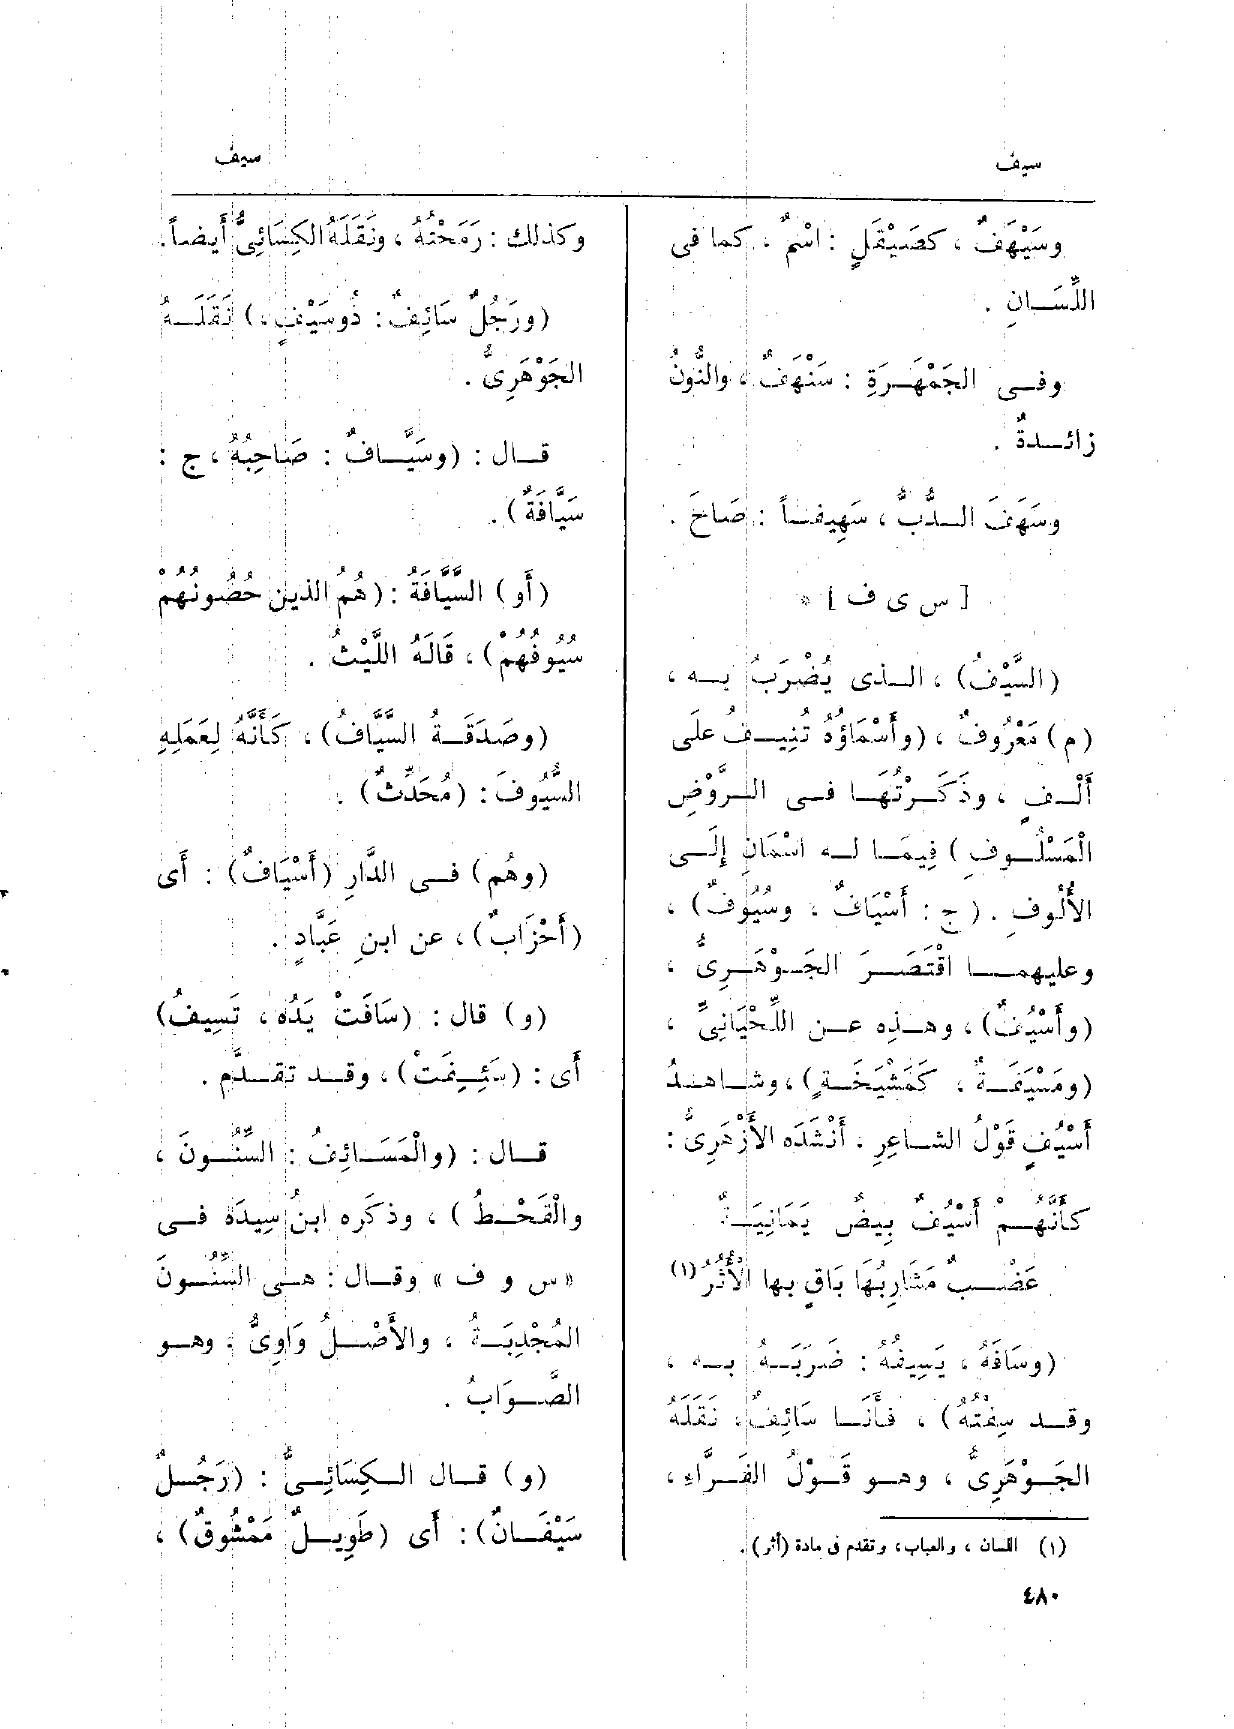 سيف
سيف
وسَيْهَفٌ ، كصَيْقَلٍ : اسْمٌ ، كما فى
اللِّسَانِ .
وفى الجَمْهَرَةِ : سَنْهَفٌ ، والنُّونُ
زائدةٌ .
وسَهَفَ الدُّبُّ ، سَهِيفاً : صَاحَ .
[ س ى ف ] *
(السَّيْفُ) ، الذى يُضْرَبُ به ،
(م) مَعْرُوفٌ ، (وأَسْمَاؤُهُ تُنِيفُ على
أَلْفٍ ، وذَكَرْتُهَا فى الرَّوْضِ
الْمَسْلُوفِ) فِيمَا له اسْمَانِ إِلَى
الأُلُوفِ . ( ج : أَسْيَافٌ ، وسُيُوفٌ) ،
وعليهما اقْتَصَرَ الجَوْهَرِىُّ ،
(وأَسْيُفٌ) ، وهذِه عن اللِّحْيَانِىِّ ،
(ومَسْيَفَةٌ ، كمَشْيَخَةٍ) ، وشاهدُ
أَسْيُفٍ قَوْلُ الشاعِرِ . أَنْشَدَه الأَزْهَرِىُّ :
كأَنَّهُمْ أَسْيُفٌ بِيضٌ يَمَانِيَةٌ
عَضْبٌ مَضَارِبُهَا بَاقٍ بها الأُثُرُ (١)
(وسَافَهُ ، يَسِيفُهُ : ضَرَبَهُ به ،
وقد سِفْتُهُ) ، فأَنَا سَائِفٌ ، نَقَلَهُ
الجَوْهَرِىُّ ، وهو قَوْلُ الفَرَّاءِ ،
(١) اللسان ، والعباب ، وتقدم فى مادة (أثر) .
٤٨٠
وكذلك : رَمَحْتُهُ ، ونَقَلَهُ الكِسَائِىُّ أَيضاً .
(ورَجُلٌ سَائِفٌ : ذُو سَيْفٍ ،) نَقَلَهُ
الجَوْهَرِىُّ .
قال : (وسَيَّافٌ : صَاحِبُهُ ، ج :
سَيَّافَةٌ) .
(أَو) السَّيَّافَةُ : (هُمُ الذين حُصُونُهُمْ
سُيُوفُهُمْ) ، قَالَهُ اللَّيْثُ .
(وصَدَقَةُ السَّيَّافُ) ، كَأَنَّهُ لِعَمَلِهِ
السُّيُوفَ : (مُحَدِّثٌ) .
(وهُم) فى الدَّارِ (أَسْيَافٌ) : أَى
(أَحْزَابٌ) ، عن ابنِ عَبَّادٍ .
(و) قال : (سَافَتْ يَدُه ، تَسِيفُ)
أَى : (سَئِفَتْ) ، وقد تقدَّم .
قال : (والْمَسَائِفُ : السِّنُونَ ،
والْقَحْطُ ) ، وذكره ابنُ سِيدَه فى
«س و ف» وقال : هى السِّنُونَ
المُجْدِبَةُ ، والأَصْلُ وَاوِىٌّ ، وهو
الصَّوَابُ .
(و) قال الكِسَائِىُّ : (رَجُلٌ
سَيْفَانٌ) : أَى (طَوِيلٌ مَمْشُوقٌ) ،